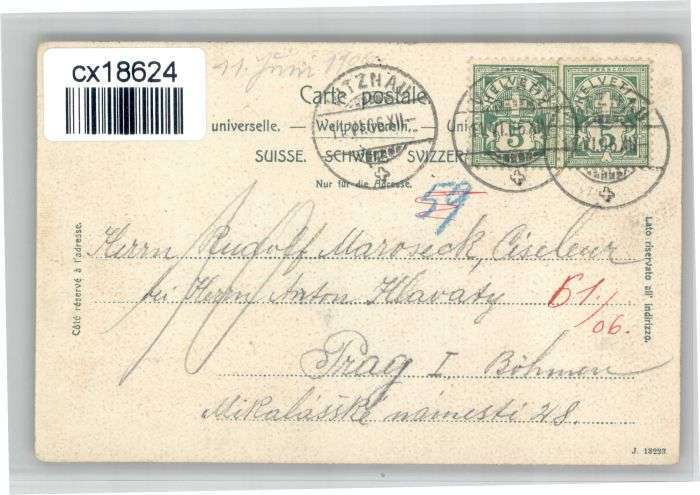 cx18624
11. Juni
Carte postale
universelle. — Weltpostverein. — Uni
SUISSE. SCHWEIZ. SVIZZER
Nur für die Adresse.
HELVETIA HELVETIA
5 5
59
Côté réservé à l'adresse.
Lato riservato all' indirizzo.
Herrn Rudolf Maroseck, Ciseleur
bei Herrn Anton Hlavaty
61./06.
Prag I. Böhmen
Mikalášské náměsti
J. 13223